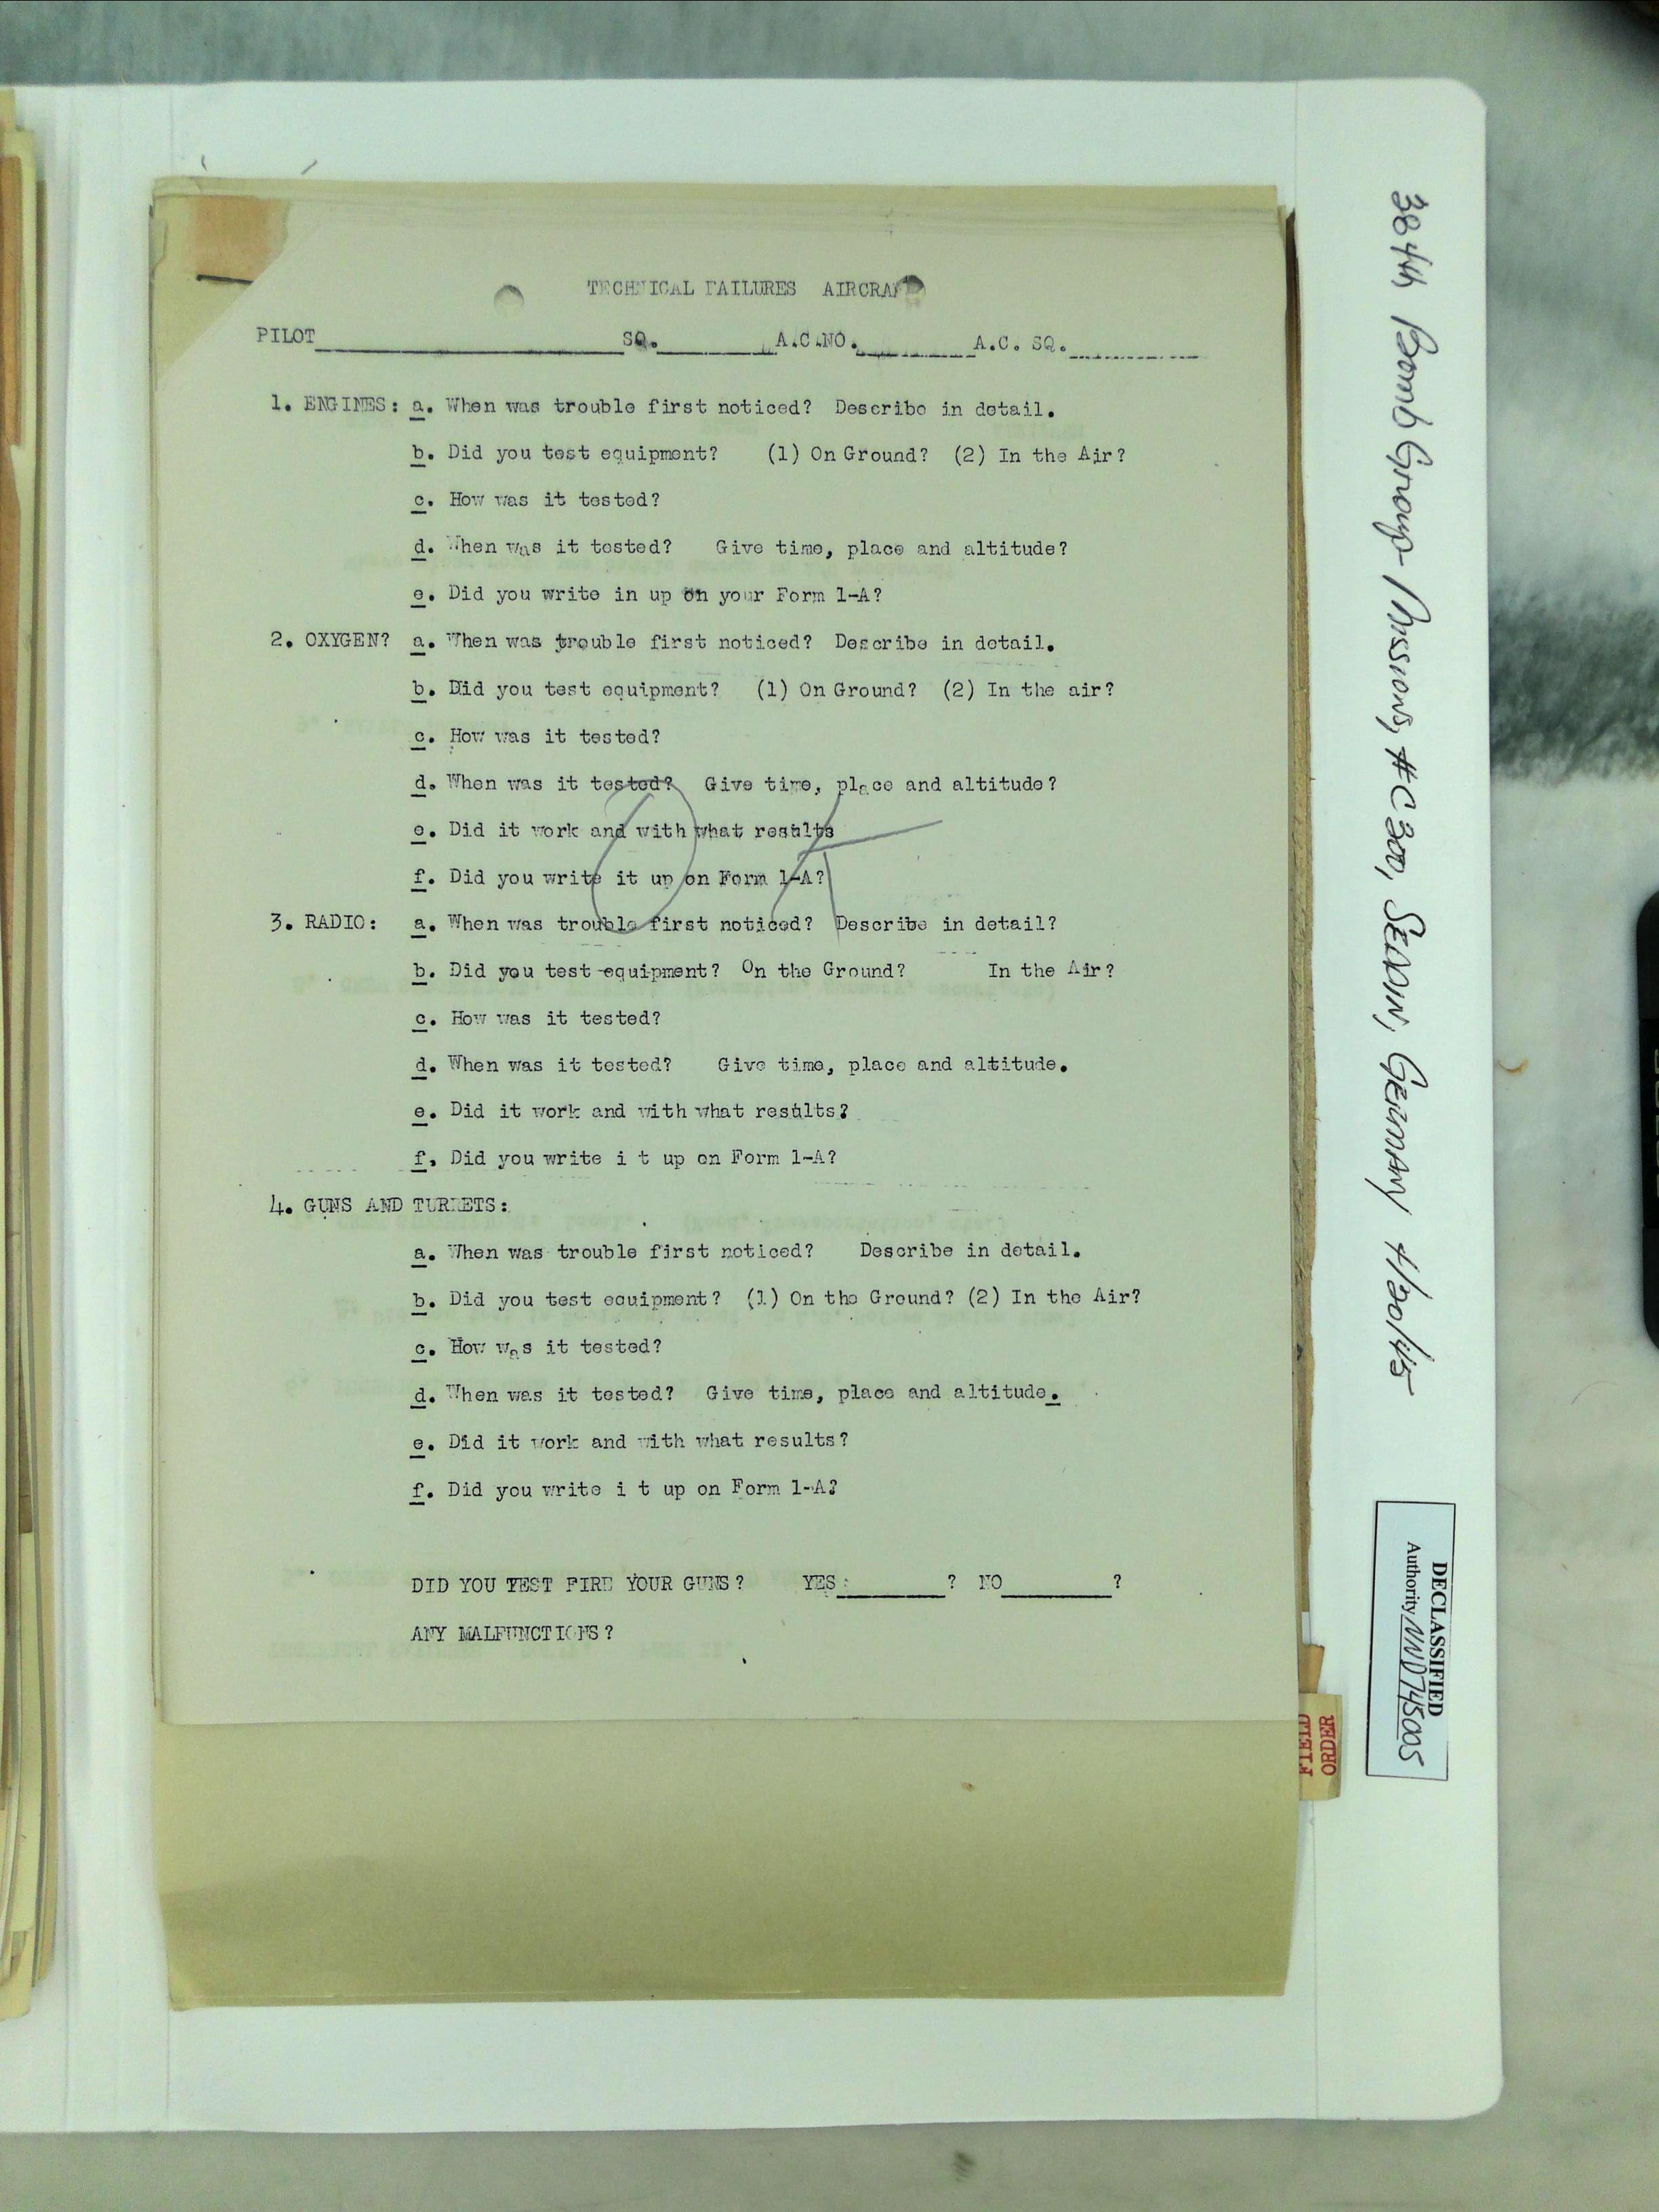 TECHNICAL FAILURES AIRCRAFT
PILOT____________ SQ.______ A.C.NO.______ A.C. SQ.______
1. ENGINES: a. When was trouble first noticed? Describe in detail.
b. Did you test equipment? (1) On Ground? (2) In the Air?
c. How was it tested?
d. When was it tested? Give time, place and altitude?
e. Did you write in up on your Form 1-A?
2. OXYGEN? a. When was trouble first noticed? Describe in detail.
b. Did you test equipment? (1) On Ground? (2) In the air?
c. How was it tested?
d. When was it tested? Give time, place and altitude?
e. Did it work and with what results
f. Did you write it up on Form 1-A?
3. RADIO: a. When was trouble first noticed? Describe in detail?
b. Did you test equipment? On the Ground? In the Air?
c. How was it tested?
d. When was it tested? Give time, place and altitude.
e. Did it work and with what results?
f. Did you write i t up on Form 1-A?
4. GUNS AND TURRETS:
a. When was trouble first noticed? Describe in detail.
b. Did you test equipment? (1) On the Ground? (2) In the Air?
c. How was it tested?
d. When was it tested? Give time, place and altitude.
e. Did it work and with what results?
f. Did you write i t up on Form 1-A?
DID YOU TEST FIRE YOUR GUNS? YES:______? NO______?
ANY MALFUNCTIONS?
384th Bomb Group- Missions, #C300, Seddin, Germany 4/20/45
DECLASSIFIED
Authority NND745005
FIELD
ORDER